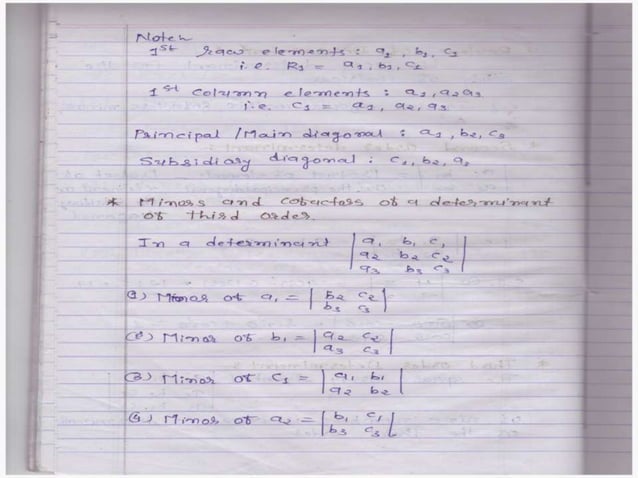 Note:-
1st Row elements : a1, b1, c1
i.e. R1 = a1, b1, c1
1st column elements : a1, a2 a3
i.e. C1 = a1, a2, a3
Principal / Main diagonal : a1, b2, c3
Subsidiary diagonal : c1, b2, a3
* Minors and cofactors of a determinant
of third order.
In a determinant | a1 b1 c1 |
| a2 b2 c2 |
| a3 b3 c3 |
(1) Minor of a1 = | b2 c2 |
| b3 c3 |
(2) Minor of b1 = | a2 c2 |
| a3 c3 |
(3) Minor of c1 = | a1 b1 |
| a2 b2 |
(4) Minor of a2 = | b1 c1 |
| b3 c3 |